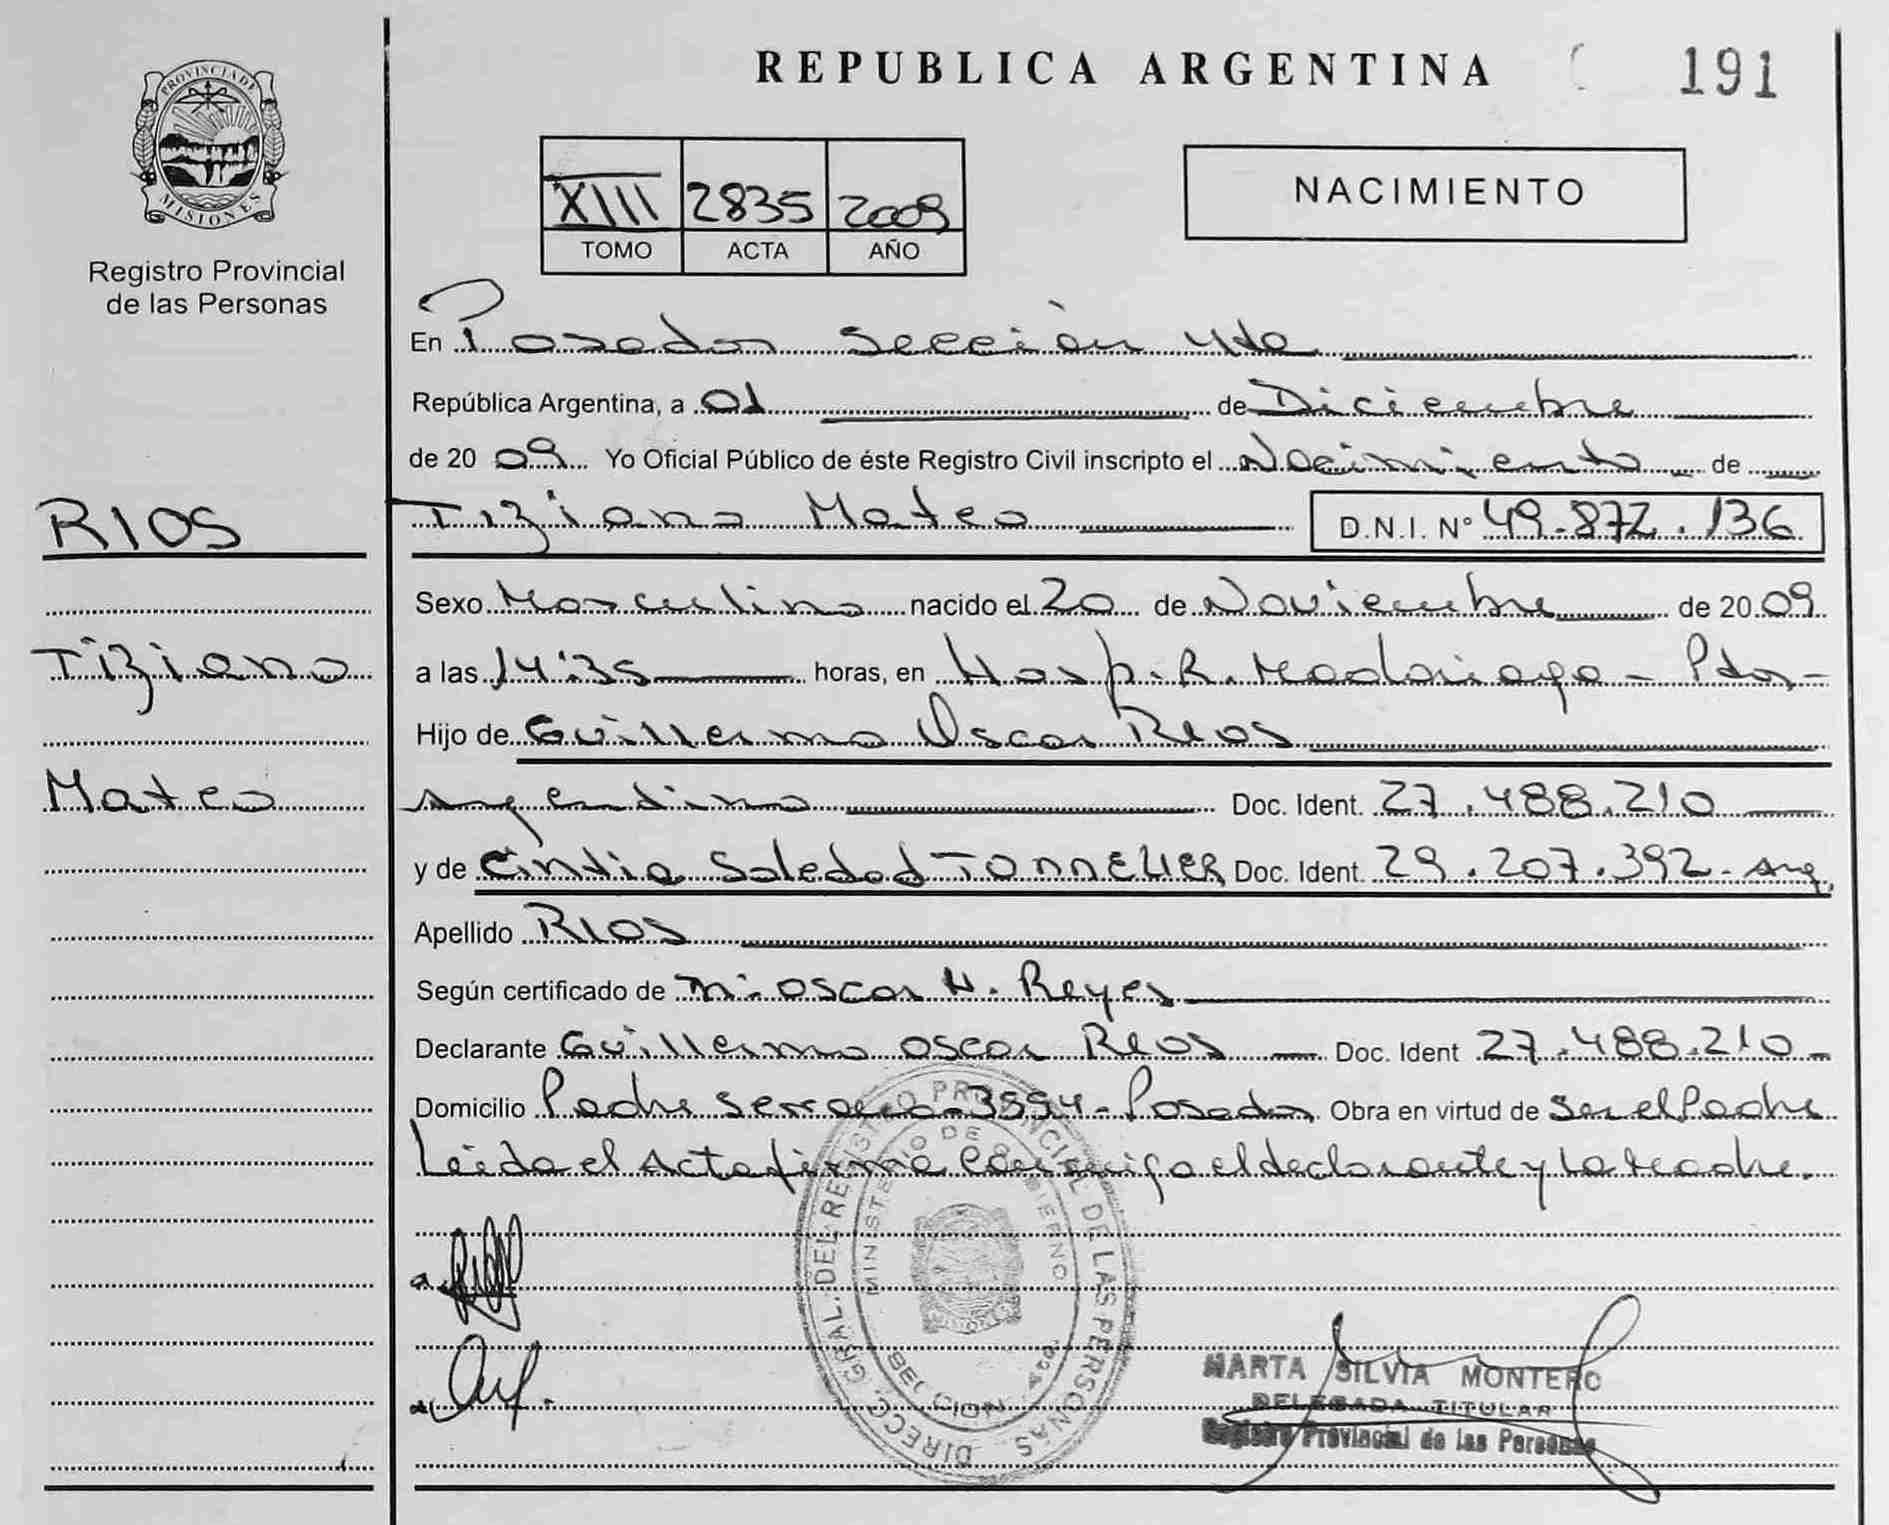 REPUBLICA ARGENTINA
191
PROVINCIA DE
MISIONES
Registro Provincial
de las Personas
XIII 2835 2009
TOMO ACTA AÑO
NACIMIENTO
En Posadas Sección 4ta
República Argentina, a 01 de Diciembre
de 20 09 Yo Oficial Público de éste Registro Civil inscripto el Nacimiento de
RIOS
Tiziano Mateo D.N.I. Nº 49.872.136
Sexo Masculino nacido el 20 de Noviembre de 20 09
Tiziano
a las 14:35 horas, en Hosp. R. Madariaga - Pdas -
Hijo de Guillermo Oscar RIOS
Mateo
Argentino Doc. Ident. 27.488.210
y de Cintia Soledad TONNELIER Doc. Ident. 29.207.392 - Arg.
Apellido RIOS
Según certificado de Oscar H. Reyes
Declarante Guillermo Oscar RIOS Doc. Ident 27.488.210 -
Domicilio Padre Serrano - 3594 - Posadas Obra en virtud de Ser el Padre
Leída el Acta firma Conmigo el declarante y la Madre.
DIRECC. GRAL. DEL REGISTRO PROVINCIAL DE LAS PERSONAS
MINISTERIO DE GOBIERNO
MISIONES
SECCION
MARTA SILVIA MONTERO
DELEGADA TITULAR
Registro Provincial de las Personas